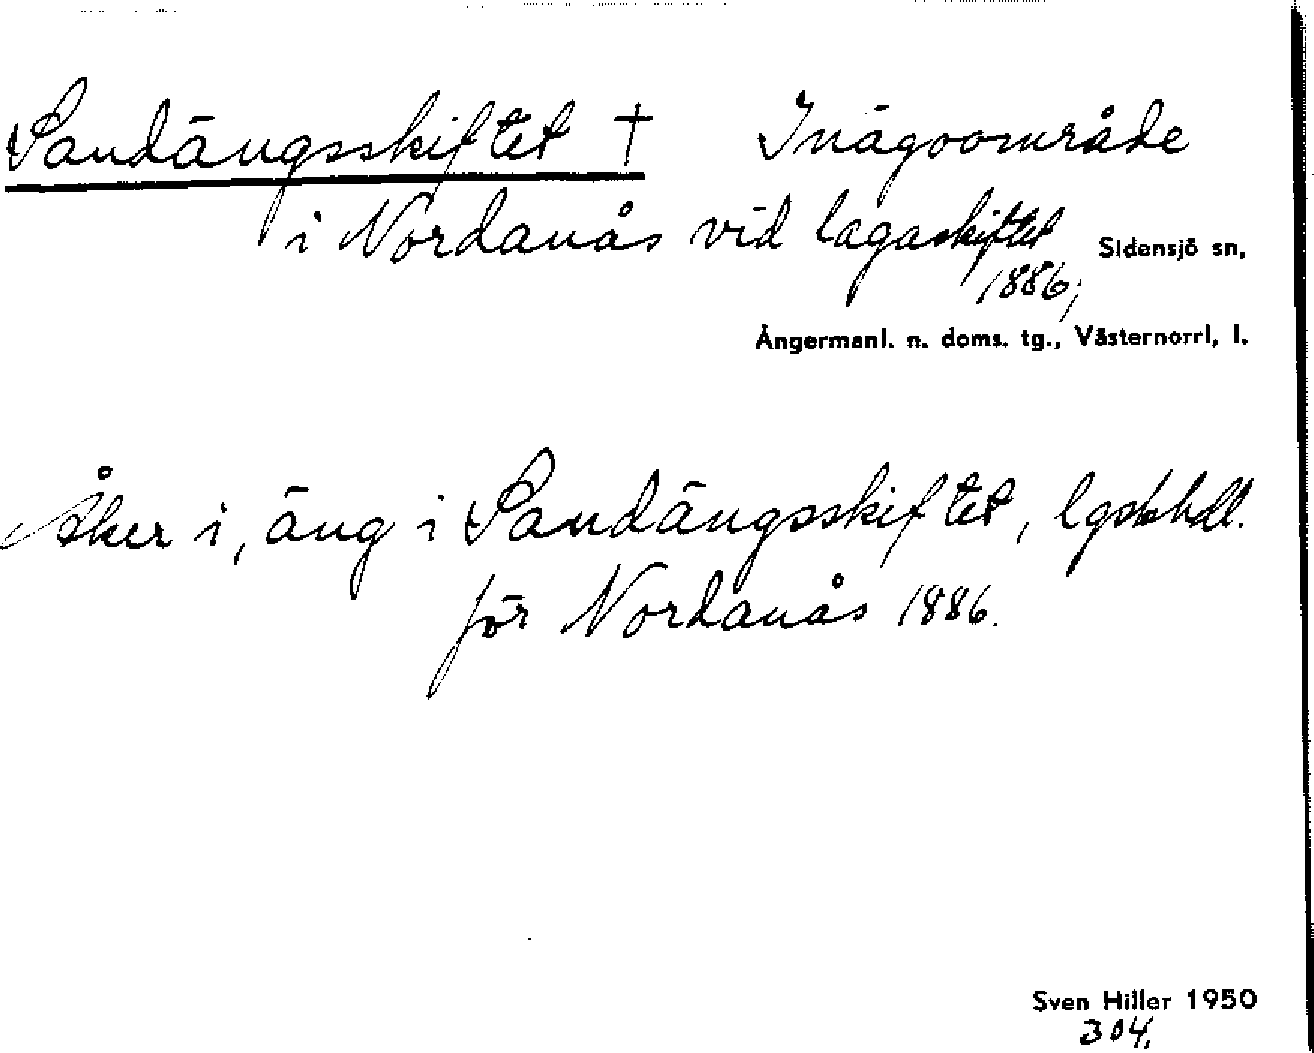 Sandängsskiftet † Inägoområde
i Nordanås vid lagaskiftet Sidensjö sn,
1886,
Ångermanl. n. doms. tg., Västernorrl, l.
Åker i, äng i Sandängsskiftet, lgskhdl.
för Nordanås 1886.
Sven Hiller 1950
304,